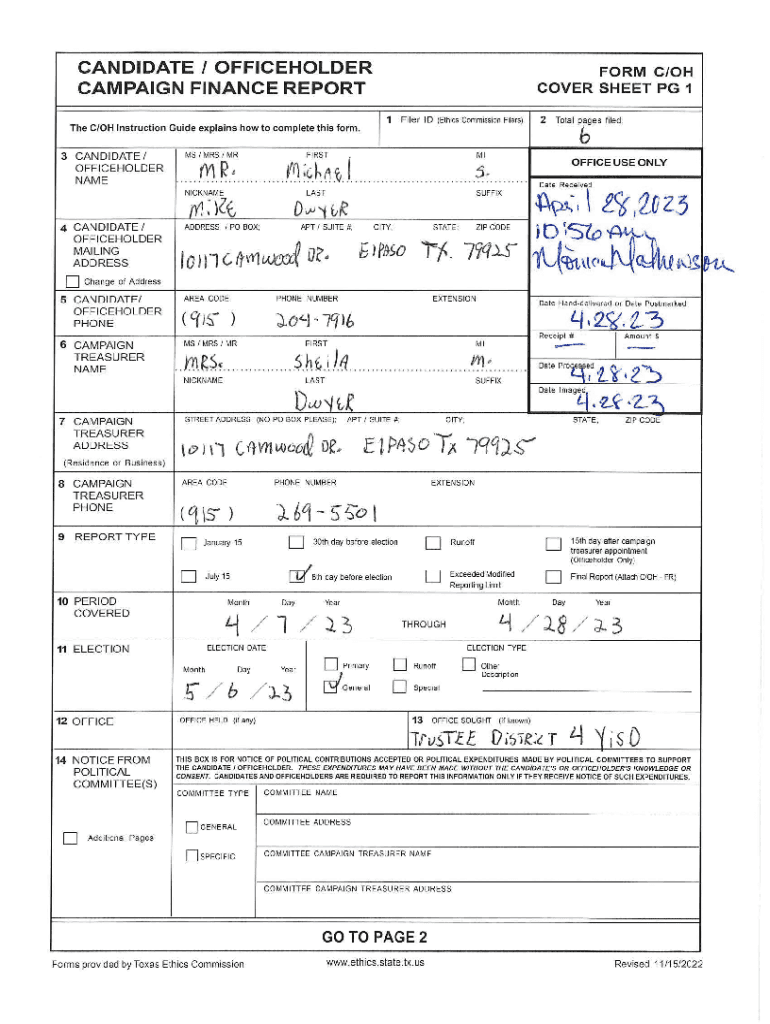 CANDIDATE / OFFICEHOLDER
CAMPAIGN FINANCE REPORT
FORM C/OH
COVER SHEET PG 1
The C/OH Instruction Guide explains how to complete this form.
1 Filer ID (Ethics Commission Filers)
2 Total pages filed:
6
3 CANDIDATE /
OFFICEHOLDER
NAME
MS / MRS / MR FIRST MI
MR. Michael S.
NICKNAME LAST SUFFIX
MiKE DwyER
OFFICE USE ONLY
Date Received
April 28, 2023
10:56 AM
Monica Mathewson
4 CANDIDATE /
OFFICEHOLDER
MAILING
ADDRESS
Change of Address
ADDRESS / PO BOX; APT / SUITE #; CITY; STATE; ZIP CODE
10117 CAMwood DR. ElPASO TX. 79925
5 CANDIDATE/
OFFICEHOLDER
PHONE
AREA CODE PHONE NUMBER EXTENSION
(915) 204-7916
Date Hand-delivered or Date Postmarked
4.28.23
Receipt # Amount $
Date Processed
4.28.23
Date Imaged
4.28.23
6 CAMPAIGN
TREASURER
NAME
MS / MRS / MR FIRST MI
MRS. SheilA M.
NICKNAME LAST SUFFIX
DwyER
7 CAMPAIGN
TREASURER
ADDRESS
(Residence or Business)
STREET ADDRESS (NO PO BOX PLEASE); APT / SUITE #; CITY; STATE; ZIP CODE
10117 CAMwood DR. ElPASO Tx 79925
8 CAMPAIGN
TREASURER
PHONE
AREA CODE PHONE NUMBER EXTENSION
(915) 269-5501
9 REPORT TYPE
January 15 30th day before election Runoff 15th day after campaign
treasurer appointment
(Officeholder Only)
July 15 8th day before election Exceeded Modified
Reporting Limit
Final Report (Attach C/OH - FR)
10 PERIOD
COVERED
Month Day Year Month Day Year
4 / 7 / 23 THROUGH 4 / 28 / 23
11 ELECTION
ELECTION DATE
Month Day Year
5 / 6 / 23
ELECTION TYPE
Primary Runoff Other
Description
General Special
12 OFFICE
OFFICE HELD (if any)
13 OFFICE SOUGHT (if known)
TRUSTEE DiSTRiCT 4 YiSD
14 NOTICE FROM
POLITICAL
COMMITTEE(S)
Additional Pages
THIS BOX IS FOR NOTICE OF POLITICAL CONTRIBUTIONS ACCEPTED OR POLITICAL EXPENDITURES MADE BY POLITICAL COMMITTEES TO SUPPORT
THE CANDIDATE / OFFICEHOLDER. THESE EXPENDITURES MAY HAVE BEEN MADE WITHOUT THE CANDIDATE'S OR OFFICEHOLDER'S KNOWLEDGE OR
CONSENT. CANDIDATES AND OFFICEHOLDERS ARE REQUIRED TO REPORT THIS INFORMATION ONLY IF THEY RECEIVE NOTICE OF SUCH EXPENDITURES.
COMMITTEE TYPE COMMITTEE NAME
GENERAL
COMMITTEE ADDRESS
SPECIFIC
COMMITTEE CAMPAIGN TREASURER NAME
COMMITTEE CAMPAIGN TREASURER ADDRESS
GO TO PAGE 2
Forms provided by Texas Ethics Commission www.ethics.state.tx.us Revised 11/15/2022